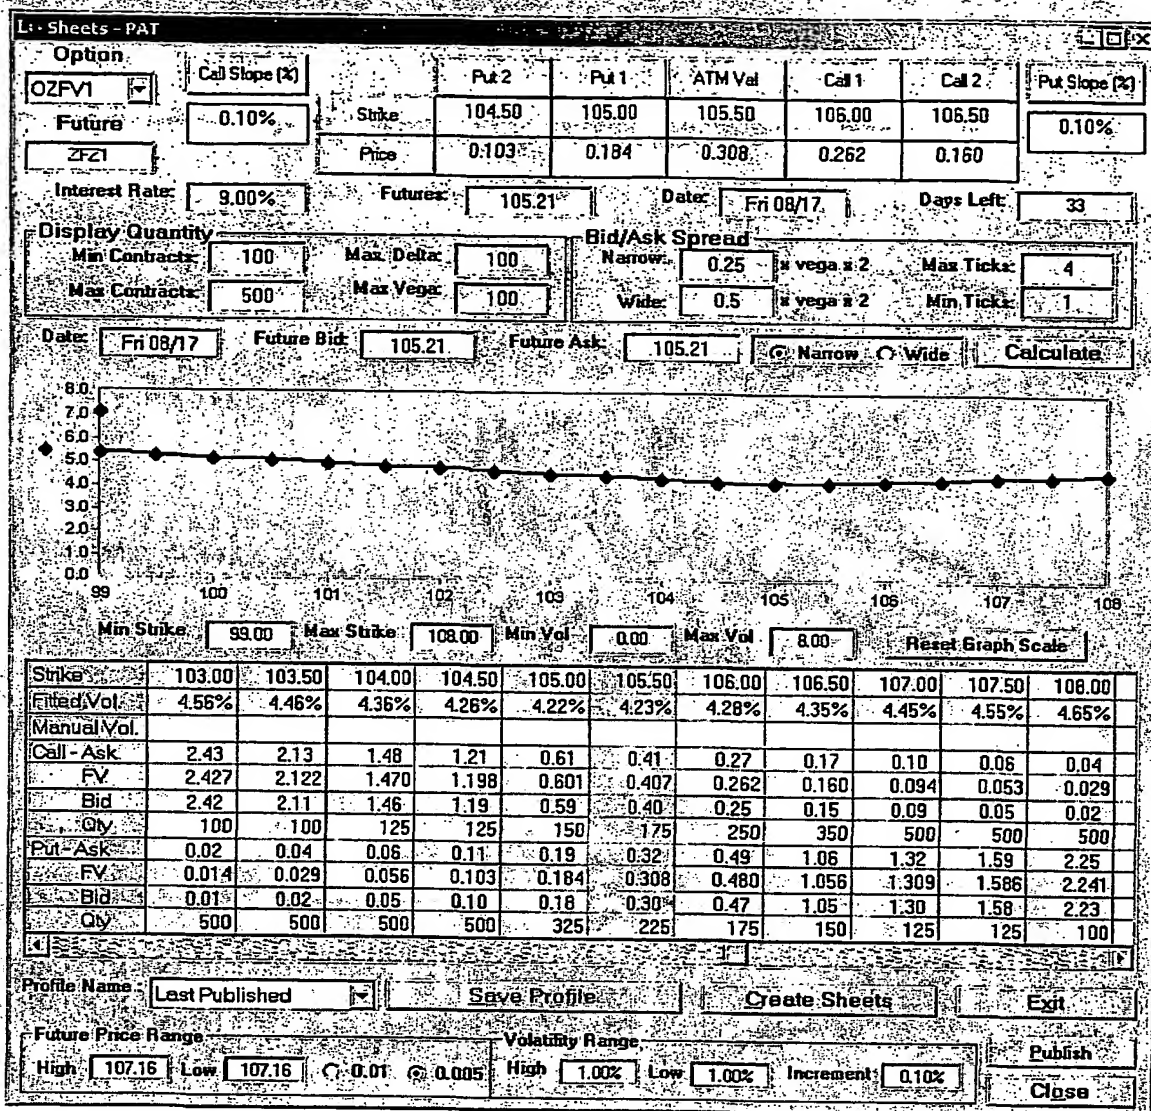 Sheets - PAT
Option Call Slope (%) Put 2 Put 1 ATM Val Call 1 Call 2 Put Slope (%)
OZFV1 0.10% Strike 104.50 105.00 105.50 106.00 106.50 0.10%
Future
ZFZ1 Price 0.103 0.184 0.308 0.262 0.160
Interest Rate: 9.00% Futures: 105.21 Date: Fri 08/17 Days Left: 33
Display Quantity Bid/Ask Spread
Min Contracts: 100 Max. Delta: 100 Narrow: 0.25 x vega x 2 Max Ticks: 4
Max Contracts: 500 Max Vega: 100 Wide: 0.5 x vega x 2 Min Ticks: 1
Date: Fri 08/17 Future Bid: 105.21 Future Ask: 105.21 Narrow Wide Calculate
8.0
7.0
6.0
5.0
4.0
3.0
2.0
1.0
0.0
99 100 101 102 103 104 105 106 107 108
Min Strike 99.00 Max Strike 108.00 Min Vol 0.00 Max Vol 8.00 Reset Graph Scale
Strike 103.00 103.50 104.00 104.50 105.00 105.50 106.00 106.50 107.00 107.50 108.00
Fitted Vol. 4.56% 4.46% 4.36% 4.26% 4.22% 4.23% 4.28% 4.35% 4.45% 4.55% 4.65%
Manual Vol.
Call - Ask 2.43 2.13 1.48 1.21 0.61 0.41 0.27 0.17 0.10 0.06 0.04
FV 2.427 2.122 1.470 1.198 0.601 0.407 0.262 0.160 0.094 0.053 0.029
Bid 2.42 2.11 1.46 1.19 0.59 0.40 0.25 0.15 0.09 0.05 0.02
Qty 100 100 125 125 150 175 250 350 500 500 500
Put - Ask 0.02 0.04 0.06 0.11 0.19 0.32 0.49 1.06 1.32 1.59 2.25
FV 0.014 0.029 0.056 0.103 0.184 0.308 0.480 1.056 1.309 1.586 2.241
Bid 0.01 0.02 0.05 0.10 0.18 0.30 0.47 1.05 1.30 1.58 2.23
Qty 500 500 500 500 325 225 175 150 125 125 100
Profile Name Last Published Save Profile Create Sheets Exit
Future Price Range Volatility Range Publish
High 107.16 Low 107.16 0.01 0.005 High 1.00% Low 1.00% Increment 0.10%
Close